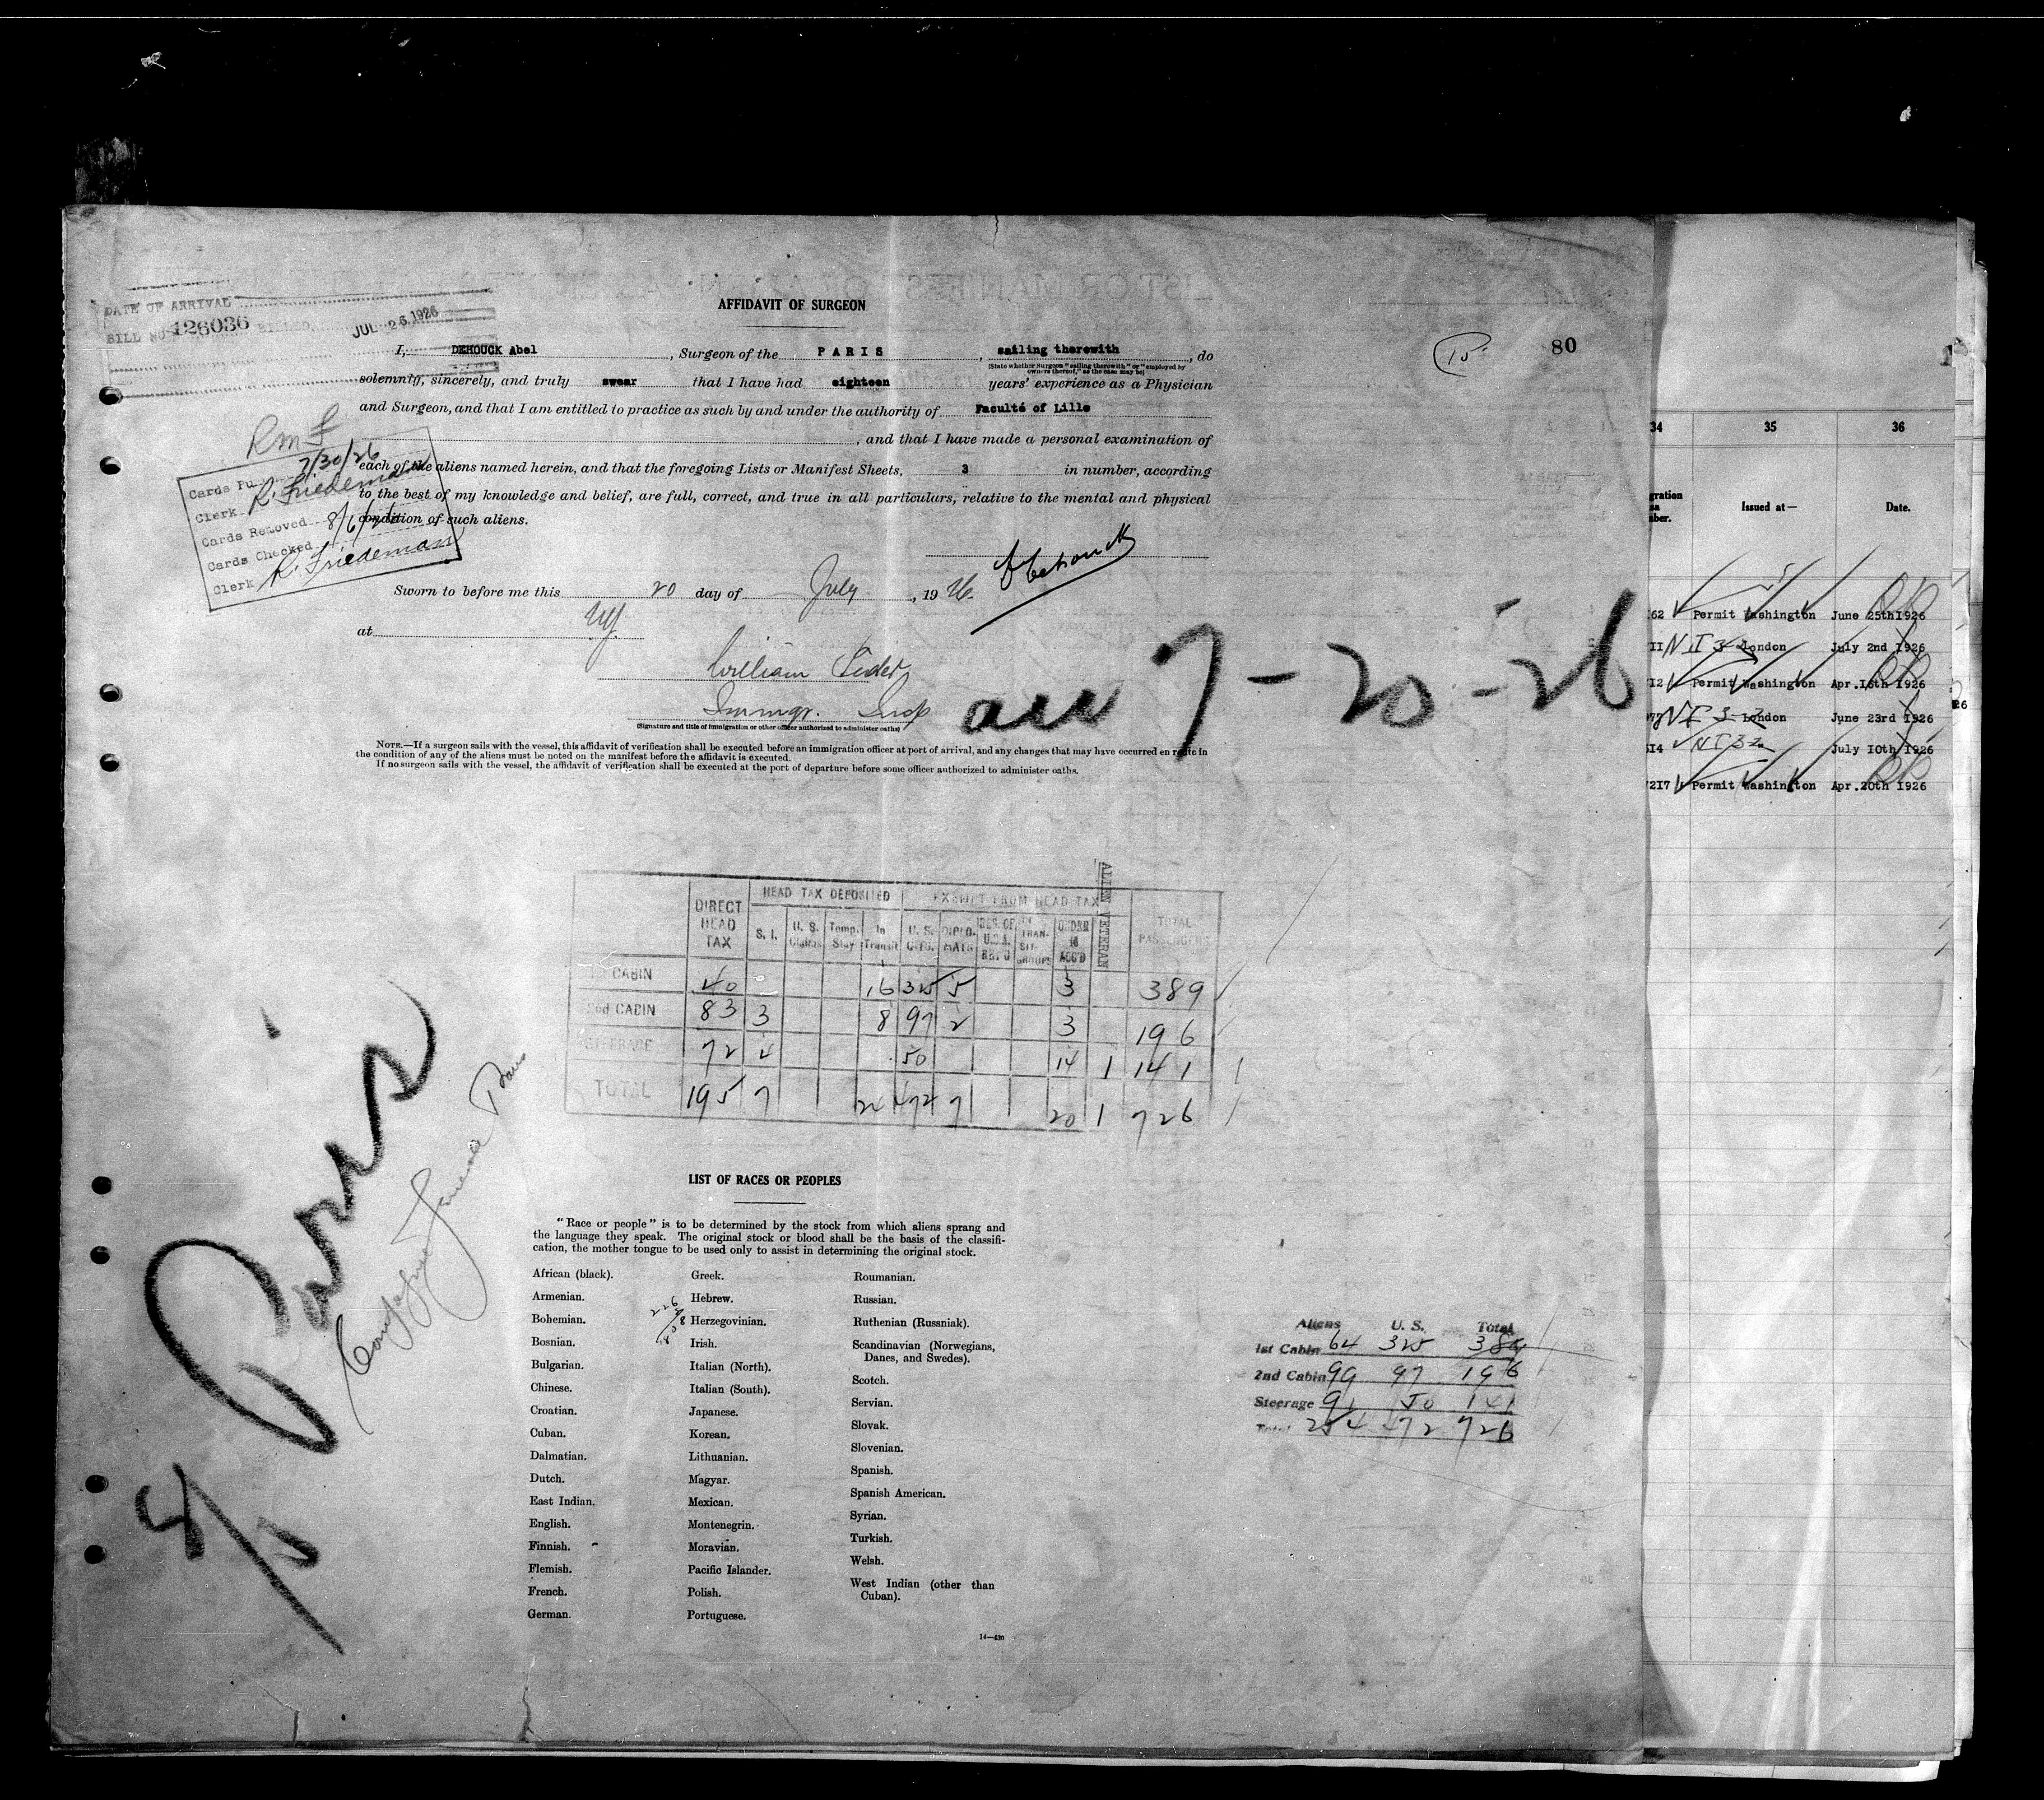 AFFIDAVIT OF SURGEON
DATE OF ARRIVAL
BILL NO. 126036 BILLED JUL 26.1926
I, DEHOUCK Abel , Surgeon of the PARIS , sailing therewith , do
(State whether Surgeon "sailing therewith" or "employed by
owners thereof," as the case may be)
15
80
solemnly, sincerely, and truly swear that I have had eighteen years' experience as a Physician
and Surgeon, and that I am entitled to practice as such by and under the authority of Faculté of Lille
, and that I have made a personal examination of
each of the aliens named herein, and that the foregoing Lists or Manifest Sheets, 3 in number, according
to the best of my knowledge and belief, are full, correct, and true in all particulars, relative to the mental and physical
condition of such aliens.
Cards Pu 7/30/26
Clerk R. Friedeman
Cards Removed
Cards Checked 8/6/26
Clerk R. Friedeman
Dehouck
Sworn to before me this 20 day of July , 19 26.
at NY.
William
Immgr. Insp
(Signature and title of immigration or other officer authorized to administer oaths)
arr 7-20-26
NOTE.—If a surgeon sails with the vessel, this affidavit of verification shall be executed before an immigration officer at port of arrival, and any changes that may have occurred en route in
the condition of any of the aliens must be noted on the manifest before the affidavit is executed.
If no surgeon sails with the vessel, the affidavit of verification shall be executed at the port of departure before some officer authorized to administer oaths.
34 35 36
Issued at— Date.
62 Permit Washington June 25th 1926
II NI 3-2 London July 2nd 1926
I2 Permit Washington Apr. 16th 1926
NI 3-2 London June 23rd 1926
I4 NI 32 July 10th 1926
2I7 Permit Washington Apr. 20th 1926
DIRECT HEAD TAX HEAD TAX DEPOSITED EXEMPT FROM HEAD TAX ALIEN VETERAN TOTAL PASSENGERS
S. I. U. S. Claims Temp. Stay In Transit U. S. CITZ. DIPLO-MATS RES. OF U.S.A. RET'G IN TRAN-SIT GROUPS UNDER 16 ACC'D
CABIN 40 16 325 5 3 389
2nd CABIN 83 3 8 97 2 3 196
STEERAGE 72 4 50 14 1 141
TOTAL 195 7 24 472 7 20 1 726
Paris
S/S
LIST OF RACES OR PEOPLES
"Race or people" is to be determined by the stock from which aliens sprang and
the language they speak. The original stock or blood shall be the basis of the classifi-
cation, the mother tongue to be used only to assist in determining the original stock.
African (black).
Armenian.
Bohemian.
Bosnian.
Bulgarian.
Chinese.
Croatian.
Cuban.
Dalmatian.
Dutch.
East Indian.
English.
Finnish.
Flemish.
French.
German.
Greek.
Hebrew.
Herzegovinian.
Irish.
Italian (North).
Italian (South).
Japanese.
Korean.
Lithuanian.
Magyar.
Mexican.
Montenegrin.
Moravian.
Pacific Islander.
Polish.
Portuguese.
Roumanian.
Russian.
Ruthenian (Russniak).
Scandinavian (Norwegians,
Danes, and Swedes).
Scotch.
Servian.
Slovak.
Slovenian.
Spanish.
Spanish American.
Syrian.
Turkish.
Welsh.
West Indian (other than
Cuban).
Aliens U. S. Total
1st Cabin 64 325 389
2nd Cabin 99 97 196
Steerage 91 50 141
Total 254 472 726